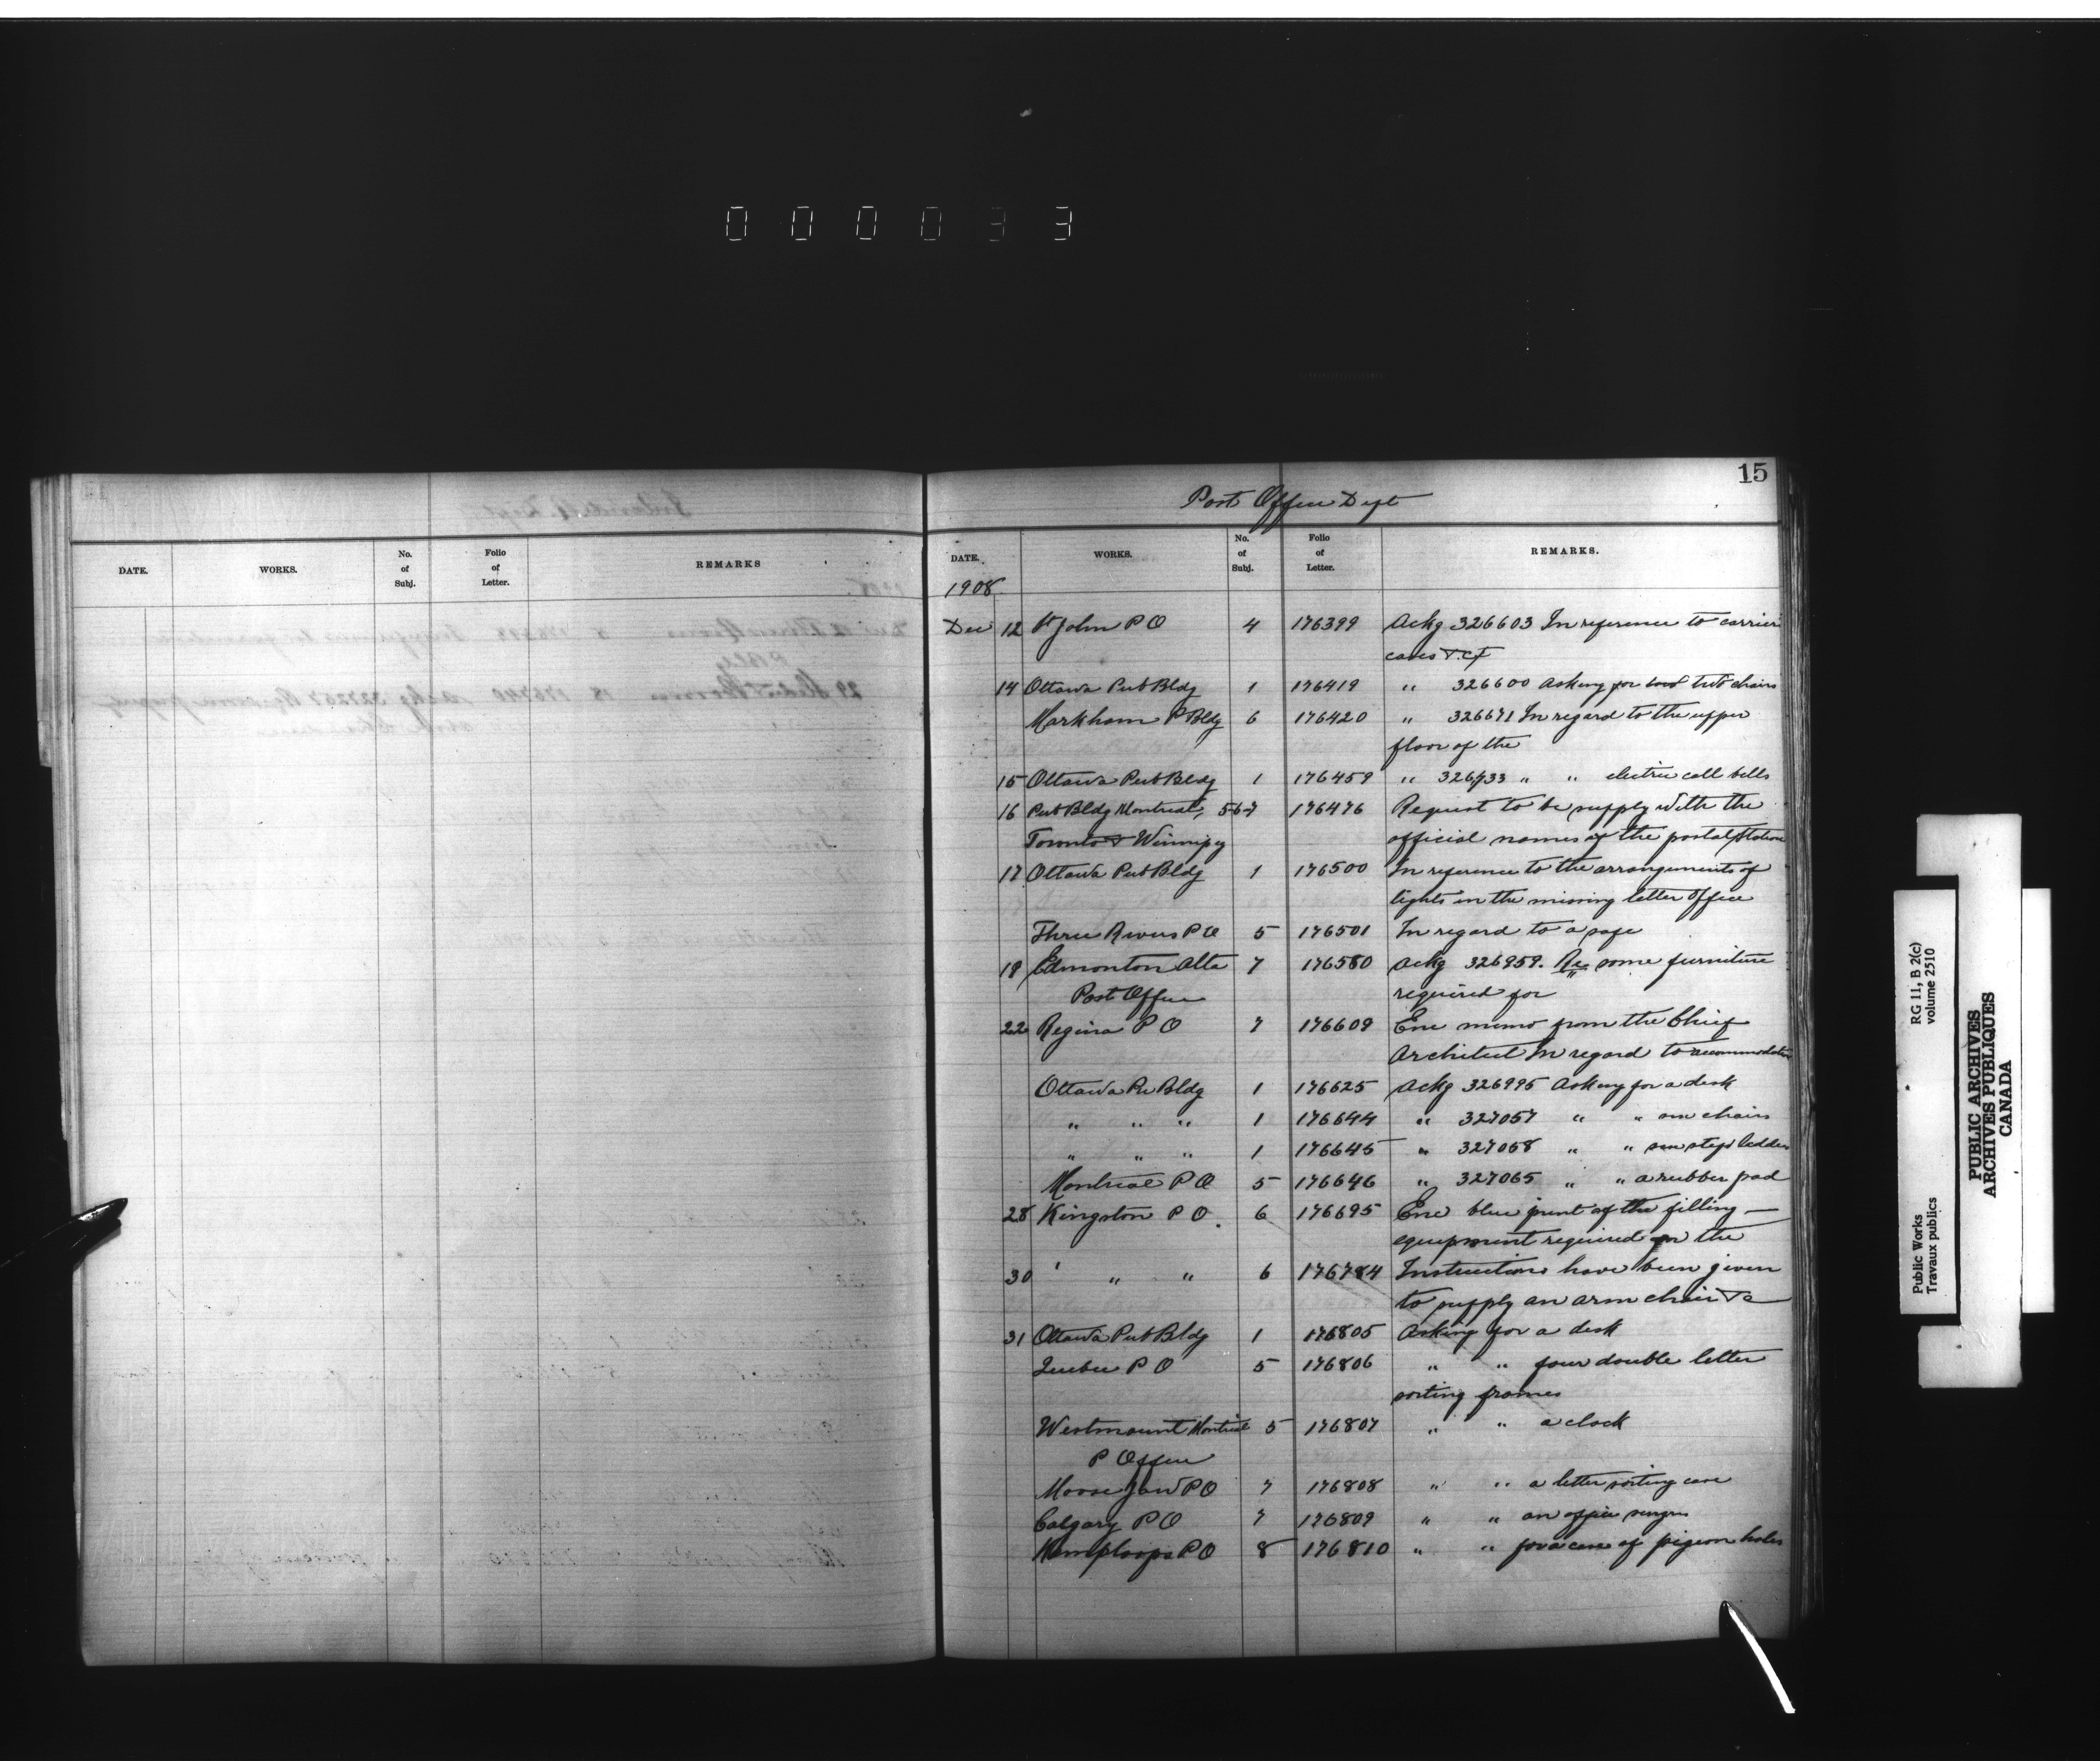 000033
15
Post Office Dept
DATE. WORKS. No. of Subj. Folio of Letter. REMARKS
DATE. WORKS. No. of Subj. Folio of Letter. REMARKS.
1908
Dec 12 St John P O 4 176399 Ackg 326603 In reference to carrier
cases &c
14 Ottawa Pub Bldg 1 176419 " 326600 Asking for two chairs
Markham P Bldg 6 176420 " 326671 In regard to the upper
floor of the
15 Ottawa Pub Bldg 1 176459 " 326733 " " electric call bells
16 Pub Bldg Montreal, 5 6 7 176476 Request to be supply with the
Toronto & Winnipeg official names of the postal stations
17 Ottawa Pub Bldg 1 176500 In reference to the arrangements of
lights in the missing letter office
Three Rivers P O 5 176501 In regard to a safe
19 Edmonton Alta 7 176580 Ackg 326959. Re some furniture
Post Office required for
22 Regina P O 7 176609 Enc memo from the Chief
Architect In regard to accommodation
Ottawa Pu Bldg 1 176625 Ackg 326995 Asking for a desk
" " " 1 176644 " 327057 " " one chair
" " " 1 176645 " 327058 " " one step ladder
Montreal P O 5 176646 " 327065 " " a rubber pad
28 Kingston P O. 6 176695 Enc blue print of the filling
equipment required for the
30 " " 6 176784 Instructions have been given
to supply an arm chair &c
31 Ottawa Pub Bldg 1 176805 Asking for a desk
Quebec P O 5 176806 " " four double letter
sorting frames
Westmount Montreal 5 176807 " " a clock
P Office
Moose Jaw P O 7 176808 " " a letter sorting case
Calgary P O 7 176809 " " an office
Kamploops P O 8 176810 " " for a case of pigeon holes
Public Works RG 11, B 2(c)
Travaux publics volume 2510
PUBLIC ARCHIVES
ARCHIVES PUBLIQUES
CANADA